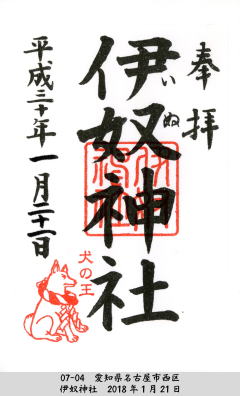 奉拝
伊奴神社
いぬ
平成三十年一月二十一日
犬の王
07-04 愛知県名古屋市西区
伊奴神社 2018年1月21日